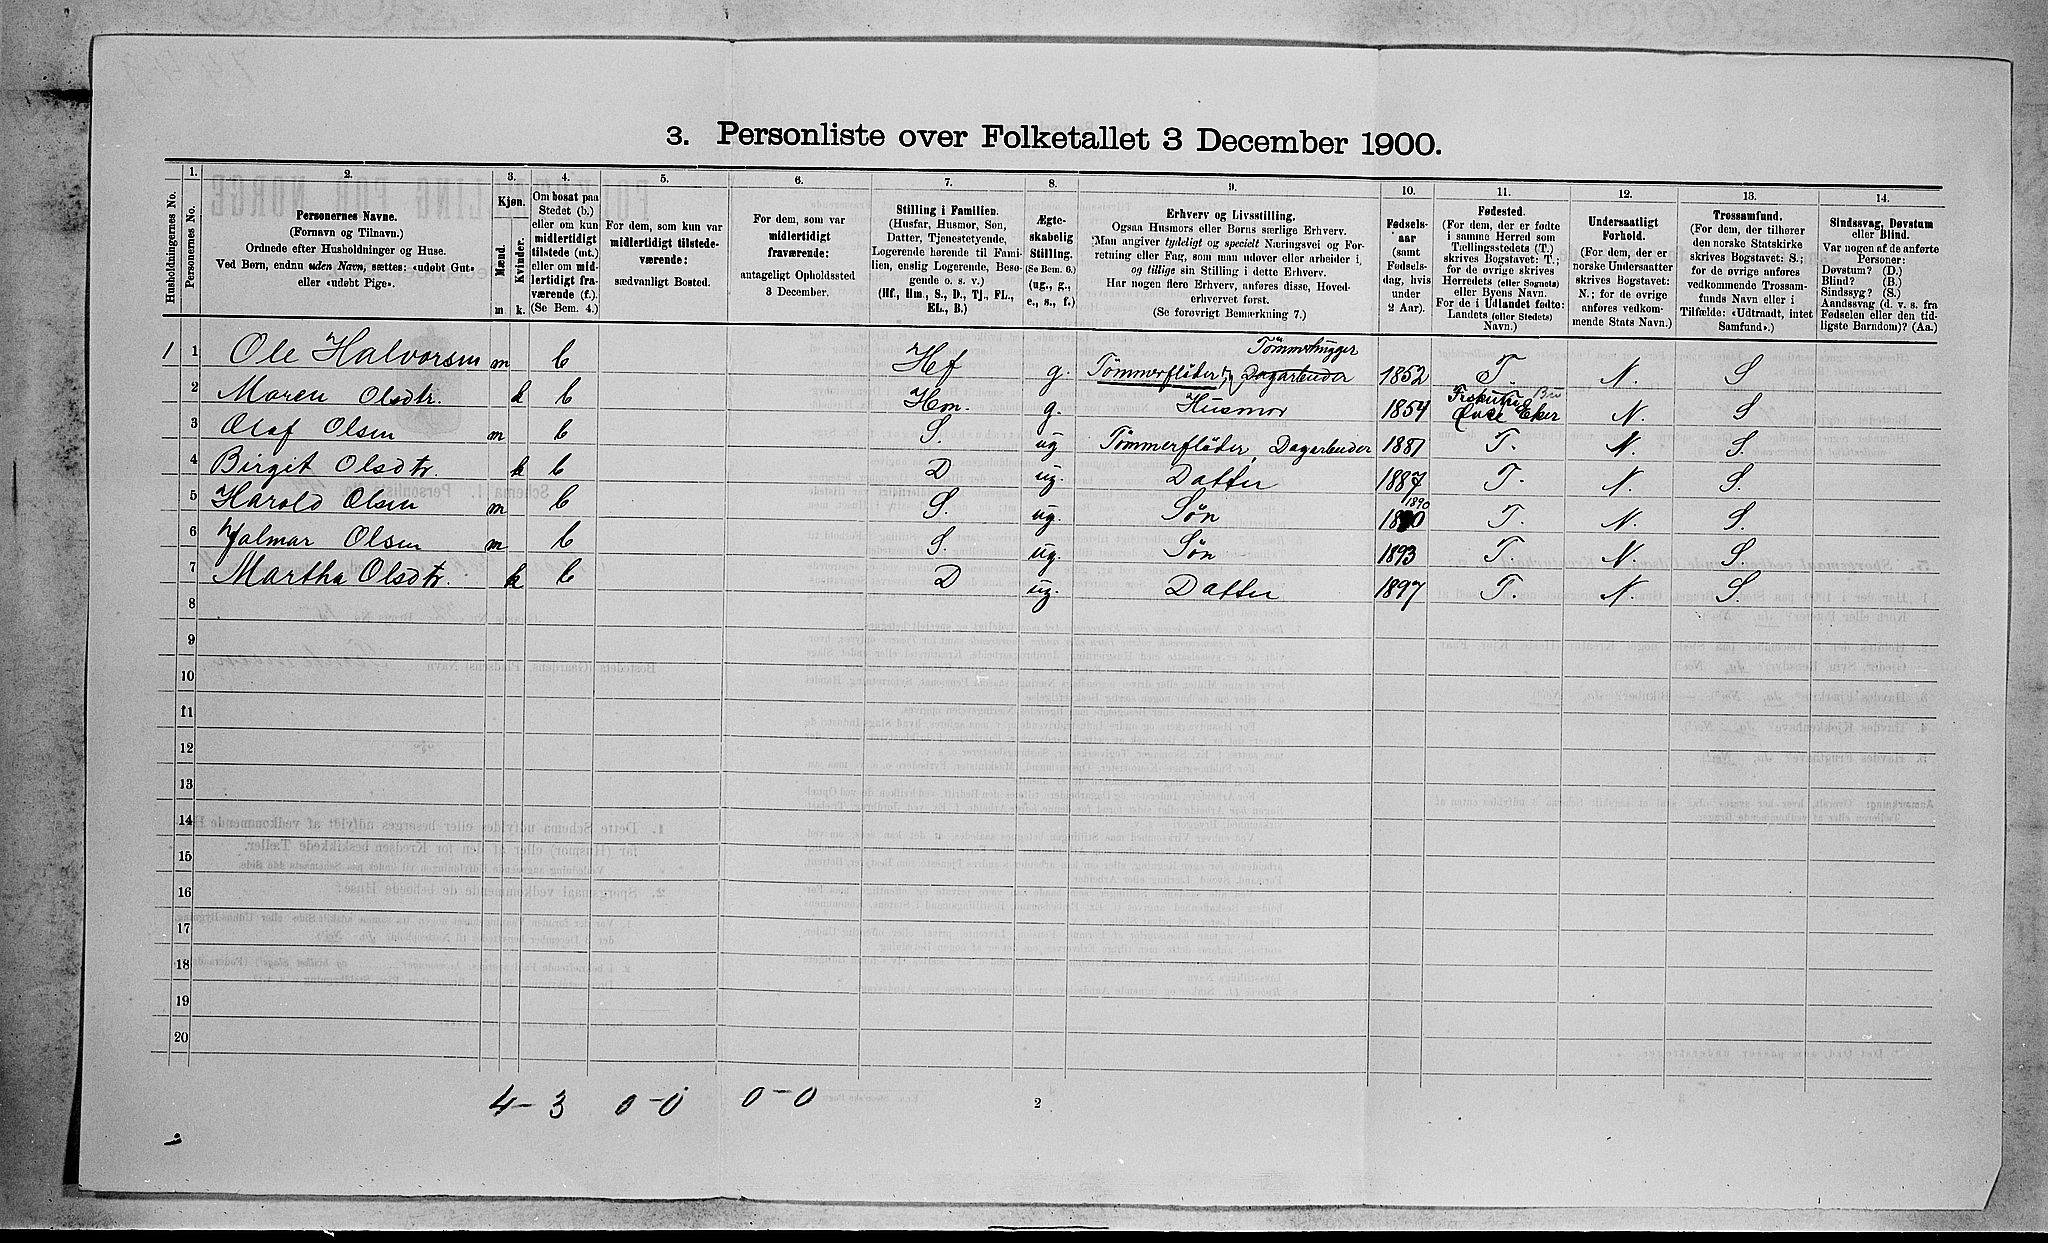 3. Personliste over Folketallet 3 December 1900.
Husholdningernes No.
1.
Personernes No.
2.
Personernes Navne.
(Fornavn og Tilnavn.)
Ordnede efter Husholdninger og Huse.
Ved Børn, endnu uden Navn, sættes: «udøbt Gut»
eller «udøbt Pige».
3.
Kjøn.
Mænd.
Kvinder.
m. k.
4.
Om bosat paa
Stedet (b.)
eller om kun
midlertidigt
tilstede (mt.)
eller om mid-
lertidigt fra-
værende (f.).
(Se Bem. 4.)
5.
For dem, som kun var
midlertidigt tilstede-
værende:
sædvanligt Bosted.
6.
For dem, som var
midlertidigt
fraværende:
antageligt Opholdssted
3 December.
7.
Stilling i Familien.
(Husfar, Husmor, Søn,
Datter, Tjenestetyende,
Logerende hørende til Fami-
lien, enslig Logerende, Besø-
gende o. s. v.)
(Hf., Hm., S., D., Tj., FL.,
EL., B.)
8.
Ægte-
skabelig
Stilling.
(Se Bem. 6.)
(ug., g.,
e., s., f.)
9.
Erhverv og Livsstilling.
Ogsaa Husmors eller Børns særlige Erhverv.
Man angiver tydeligt og specielt Næringsvei og For-
retning eller Fag, som man udover eller arbeider i,
og tillige sin Stilling i dette Erhverv.
Har nogen flere Erhverv, anføres disse, Hoved-
erhvervet først.
(Se forøvrigt Bemerkning 7.)
10.
Fødsels-
aar
(samt
Fødsels-
dag, hvis
under
2 Aar).
11.
Fødested.
(For dem, der er fødte
i samme Herred som
Tællingsstedets (T.)
skrives Bogstavet: T.;
for de øvrige skrives
Herredets (eller Sognets)
eller Byens Navn.
For de i Udlandet fødte:
Landets (eller Stedets)
Navn.)
12.
Undersaatligt
Forhold.
(For dem, der er
norske Undersaatter
skrives Bogstavet:
N.; for de øvrige
anføres vedkom-
mende Stats Navn.)
13.
Trossamfund.
(For dem, der tilhører
den norske Statskirke
skrives Bogstavet: S.;
for de øvrige anføres
vedkommende Trossam-
funds Navn eller i
Tilfælde: «Udtraadt, intet
Samfund».)
14.
Sindssvag, Døvstum
eller Blind.
Var nogen af de anførte
Personer:
Døvstum? (D.)
Blind? (B.)
Sindssyg? (S.)
Aandssvag (d. v. s. fra
Fødselen eller den tid-
ligste Barndom)? (Aa.)
1 1 Ole Halvorsen m b Hf g. Tømmerfløder, Tømmerhugger Dagarbeider 1852 T. N. S
2 Maren Olsdtr. k b Hm. g. Husmor 1854 Eker N. S
3 Olaf Olsen m b S. ug Tømmerfløder, Dagarbeider 1881 T. N. S.
4 Birgit Olsdtr. k b D ug. Datter 1887 T. N. S.
5 Harold Olsen m b S. ug. Søn 1890 T. N. S.
6 Hjalmar Olsen m b S. ug. Søn 1893 T. N. S.
7 Martha Olsdtr. k b D ug. Datter 1897 T. N. S.
8
9
10
11
12
13
14
15
16
17
18
19
20
4-3 0-0 0-0
2